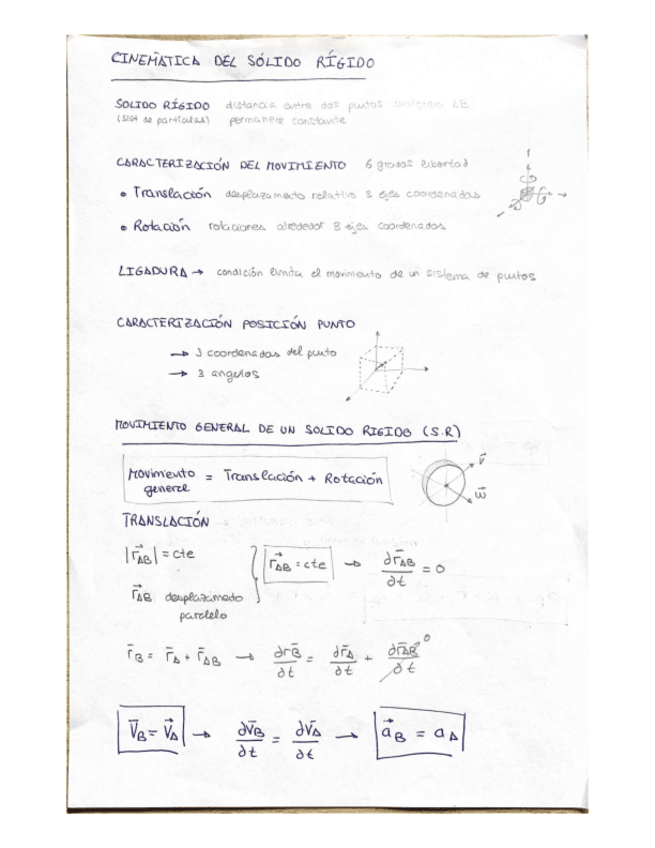 CINEMÁTICA DEL SÓLIDO RÍGIDO
SOLIDO RÍGIDO distancia entre dos puntos
(sist de partículas) permanece constante
CARACTERIZACIÓN DEL MOVIMIENTO 6 grados libertad
• Translación desplazamento relativo 3 ejes coordenadas
• Rotación rotaciones alrededor 3 ejes coordenados
LIGADURA → condición limita el movimiento de un sistema de puntos
CARACTERIZACIÓN POSICIÓN PUNTO
→ 3 coordenadas del punto
→ 3 angulos
MOVIMIENTO GENERAL DE UN SOLIDO RIGIDO (S.R)
Movimiento general = Translación + Rotación
v⃗
w⃗
TRANSLACIÓN
|r⃗AB| = cte
r⃗AB desplazamiento
paralelo
r⃗AB = cte → ∂r̄AB/∂t = 0
r̄B = r̄A + r̄AB → ∂r̄B/∂t = ∂r̄A/∂t + ∂r̄AB/∂t 0
V̄B = V⃗A → ∂V̄B/∂t = ∂V̄A/∂t → a⃗B = aA